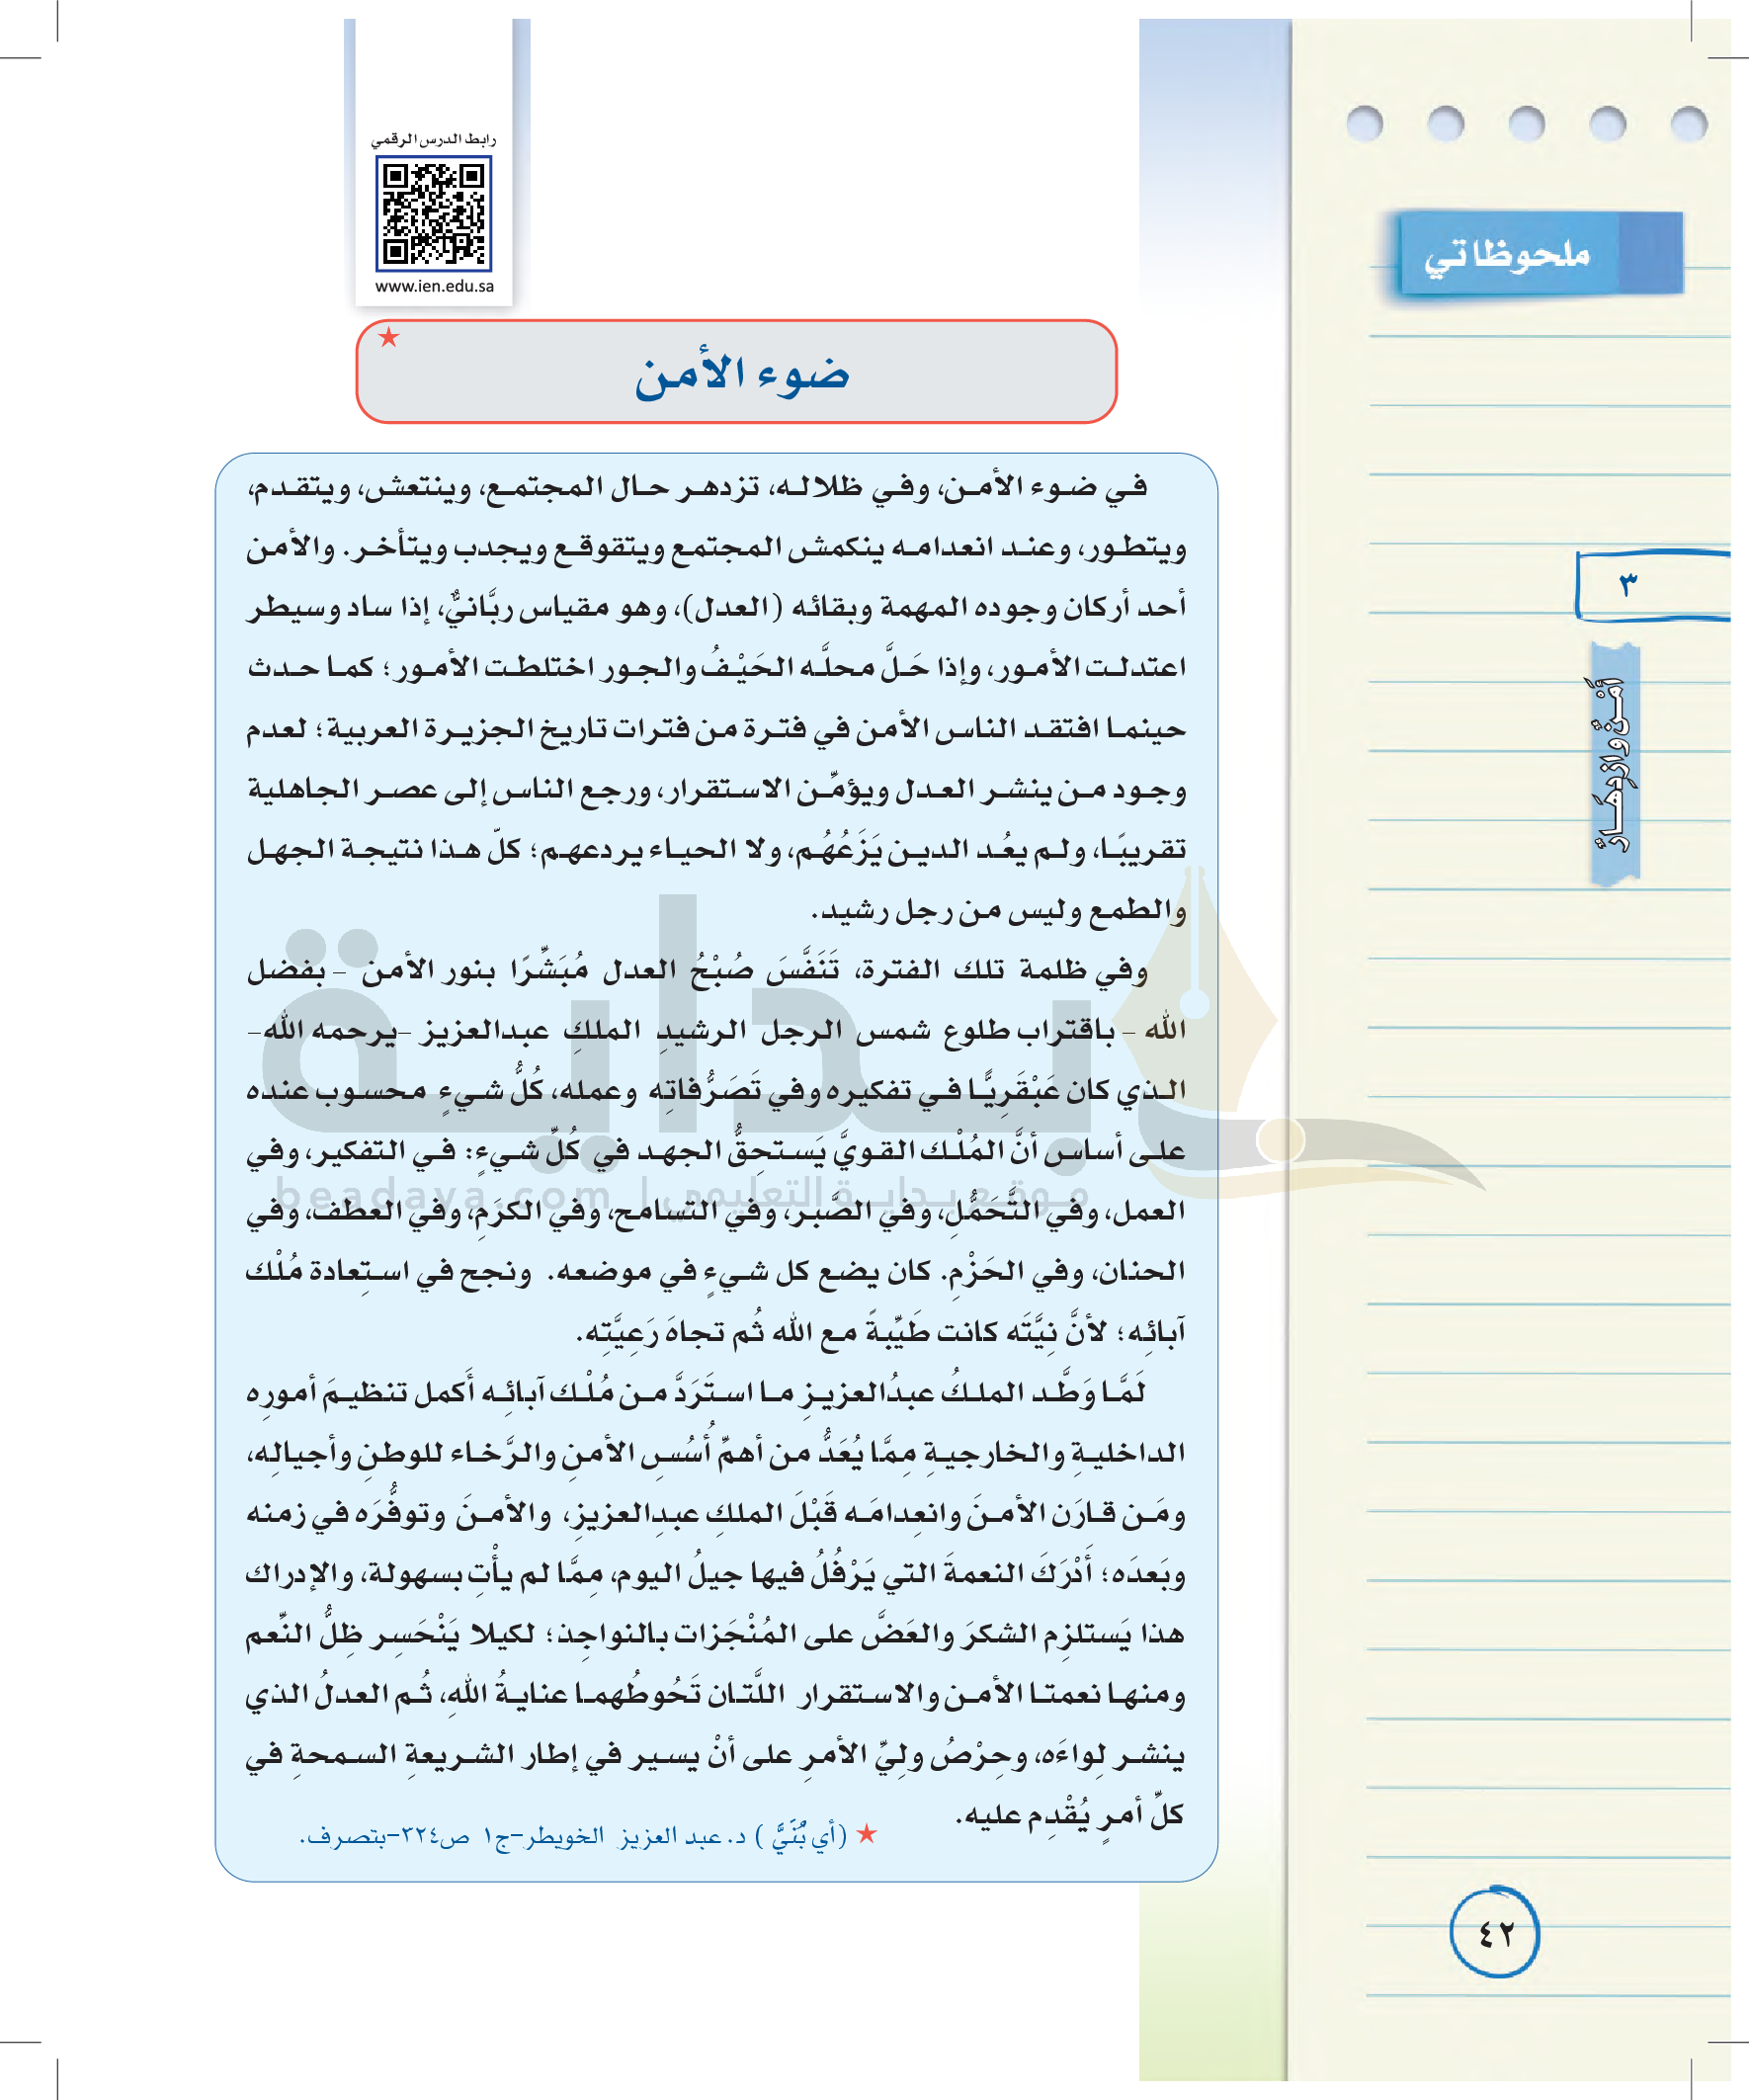 رابط الدرس الرقمي
www.ien.edu.sa
ملحوظاتي
ضوء الأمن
★
في ضوء الأمن، وفي ظلاله، تزدهر حال المجتمع، وينتعش، ويتقدم،
ويتطور، وعند انعدامه ينكمش المجتمع ويتقوقع ويجدب ويتأخر. والأمن
أحد أركان وجوده المهمة وبقائه (العدل)، وهو مقياس ربَّانيٌّ، إذا ساد وسيطر
اعتدلت الأمور، وإذا حَلَّ محلَّه الحَيْفُ والجور اختلطت الأمور؛ كما حدث
حينما افتقد الناس الأمن في فترة من فترات تاريخ الجزيرة العربية؛ لعدم
وجود من ينشر العدل ويؤمِّن الاستقرار، ورجع الناس إلى عصر الجاهلية
تقريبًا، ولم يعُد الدين يَزَعُهُم، ولا الحياء يردعهم؛ كلّ هذا نتيجة الجهل
والطمع وليس من رجل رشيد.
وفي ظلمة تلك الفترة، تَنَفَّسَ صُبْحُ العدل مُبَشِّرًا بنور الأمن – بفضل
الله – باقتراب طلوع شمس الرجل الرشيدِ الملكِ عبدالعزيز –يرحمه الله–
الذي كان عَبْقَرِيًّا في تفكيره وفي تَصَرُّفاتِه وعمله، كُلُّ شيءٍ محسوب عنده
على أساس أنَّ المُلْك القويَّ يَستحِقُّ الجهد في كُلِّ شيءٍ: في التفكير، وفي
العمل، وفي التَّحَمُّلِ، وفي الصَّبر، وفي التسامح، وفي الكرَمِ، وفي العطف، وفي
الحنان، وفي الحَزْمِ. كان يضع كل شيءٍ في موضعه. ونجح في استِعادة مُلْك
آبائِه؛ لأنَّ نِيَّتَه كانت طَيِّبةً مع الله ثُم تجاهَ رَعِيَّتِه.
لَمَّا وَطَّد الملكُ عبدُالعزيزِ ما استَرَدَّ من مُلْك آبائِه أَكمل تنظيمَ أمورِه
الداخليةِ والخارجيةِ مِمَّا يُعَدُّ من أهمِّ أُسُسِ الأمنِ والرَّخاء للوطنِ وأجيالِه،
ومَن قارَن الأمنَ وانعِدامَه قَبْلَ الملكِ عبدِالعزيزِ، والأمنَ وتوفُّرَه في زمنه
وبَعدَه؛ أَدْرَكَ النعمةَ التي يَرْفُلُ فيها جيلُ اليوم، مِمَّا لم يأْتِ بسهولة، والإدراك
هذا يَستلزِم الشكرَ والعَضَّ على المُنْجَزات بالنواجِذ؛ لكيلا يَنْحَسِر ظِلُّ النِّعم
ومنها نعمتا الأمن والاستقرار اللَّتان تَحُوطُهما عنايةُ اللهِ، ثُم العدلُ الذي
ينشر لِواءَه، وحِرْصُ ولِيِّ الأمرِ على أنْ يسير في إطار الشريعةِ السمحةِ في
كلِّ أمرٍ يُقْدِم عليه.
★ (أي بُنَيَّ) د. عبد العزيز الخويطر–ج١ ص٣٢٤–بتصرف.
٣
أَمْنٌ وازْدِهَارٌ
٤٢
بداية
موقع بداية التعليمي | beadaya.com